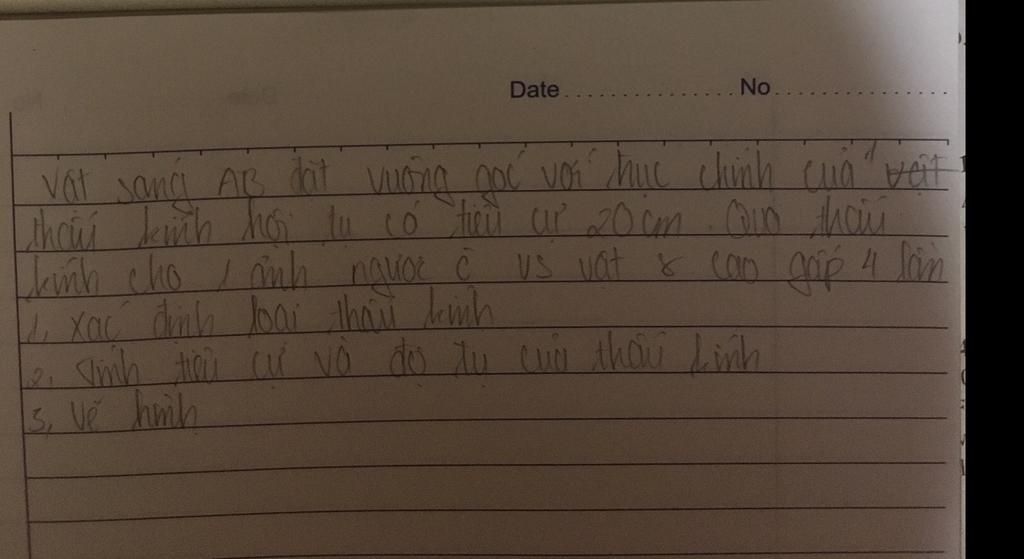 Date ............... No ...............
Vật sáng AB đặt vuông góc với trục chính của
thấu kính hội tụ có tiêu cự 20 cm. Qua thấu
kính cho 1 ảnh ngược c̄ vs vật & cao gấp 4 lần
1, xác định loại thấu kính
2. tính tiêu cự và độ tụ của thấu kính
3, vẽ hình